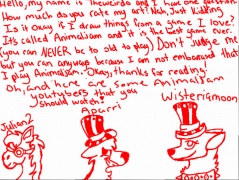 Hello, my name is Thewerido and I have one question
How much do you rate my art? Nah, Just kidding
Is it okay if I draw things from a game I love?
Its called Animaljam and it is the best game ever.
you can NEVER be to old to play) Don't judge me
but you can anyways because I am not embarrased that
I play Animaljam. Okay, thanks for reading!
Oh, and here are some Animaljam
youtubers that you
should watch!
Julian2
Aparri
Wisteriamoon